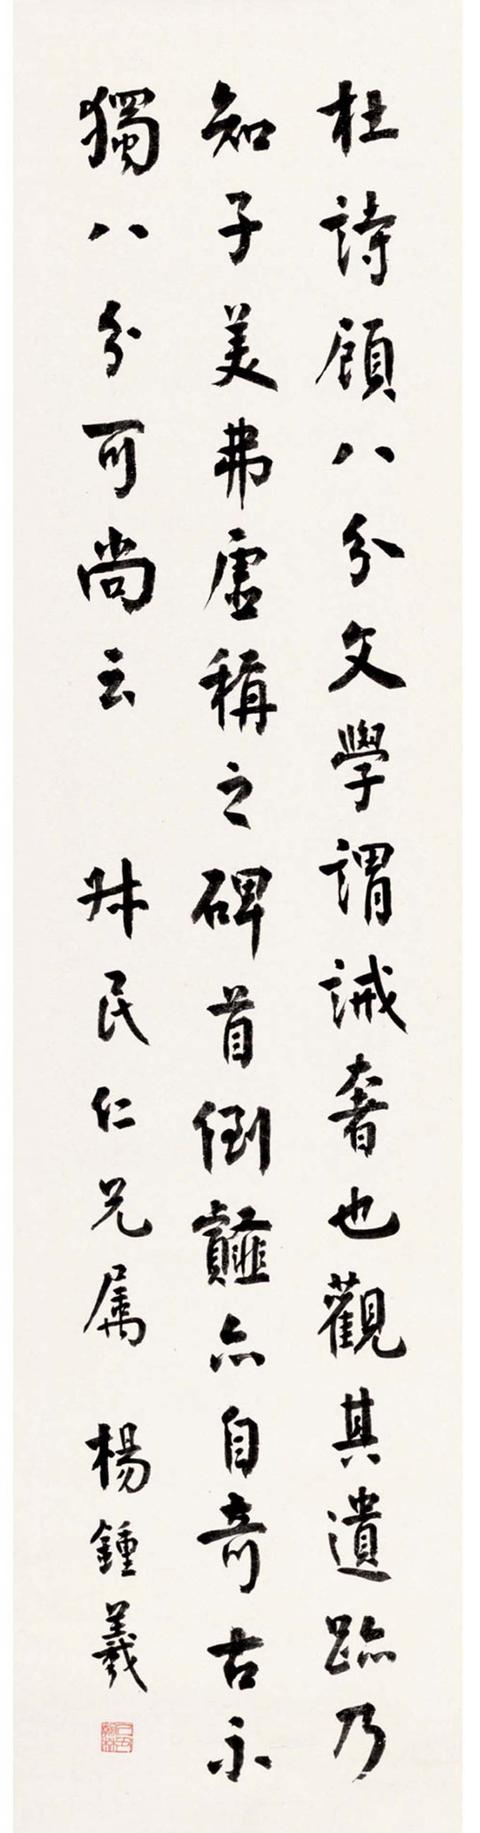 杜詩顧八分文學謂誡奢也觀其遺跡乃
知子美弗虛稱之碑首倒薤亦自奇古不
獨八分可尚云
叔民仁兄属
楊鍾羲